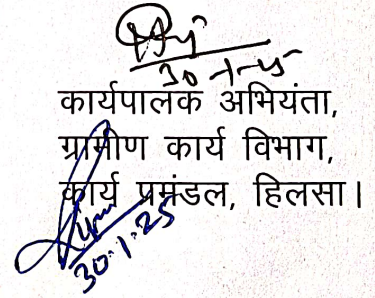 30-1-25
कार्यपालक अभियंता,
ग्रामीण कार्य विभाग,
कार्य प्रमंडल, हिलसा।
30.1.25